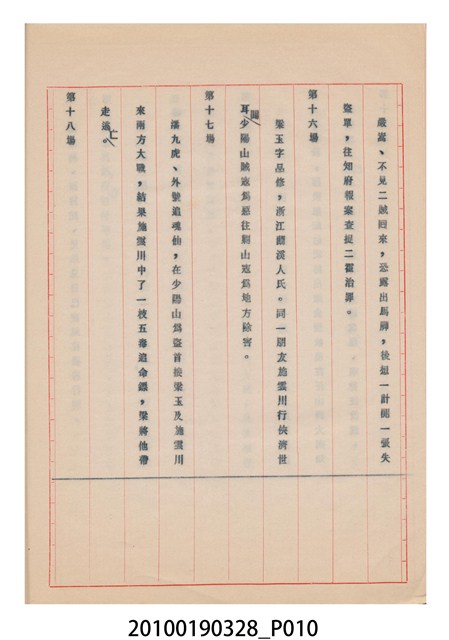 嚴嵩、不見二賊囘來，恐露出馬脚，後想一計開一張失
盜單，往知府報案查捉二翟治罪。
第十六場
梁玉字品修，浙江蘭溪人氏。同一朋友施雲川行俠濟世
聞耳少陽山賊寇爲惡往關山寇爲地方除害。
第十七場
潘九虎、外號追魂仙，在少陽山爲盜首挨梁玉及施雲川
來兩方大戰，結果施雲川中了一枝五毒追命鏢，梁將他帶
走逃亡。
第十八場
20100190328_P010